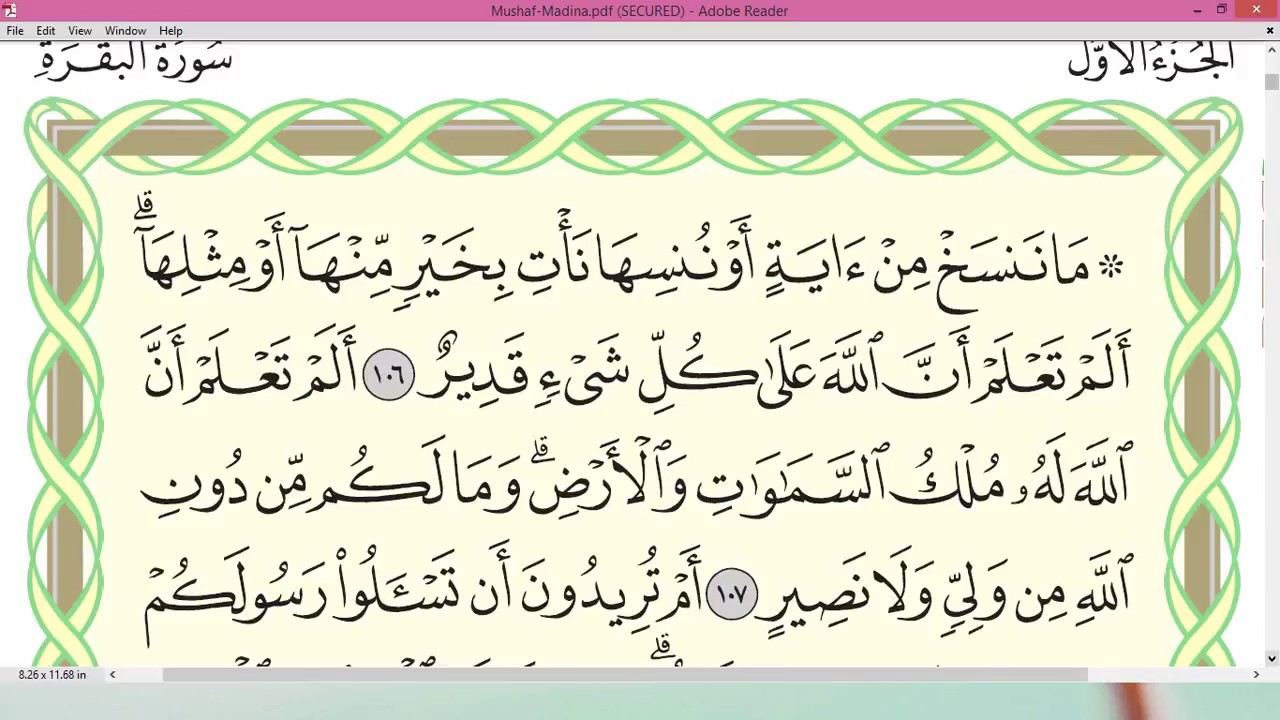 Mushaf-Madina.pdf (SECURED) - Adobe Reader
File Edit View Window Help
الجُزءُ الأَوَّل سُورَةُ البَقَرَةِ
* مَا نَنسَخۡ مِنۡ ءَايَةٍ أَوۡ نُنسِهَا نَأۡتِ بِخَيۡرٖ مِّنۡهَآ أَوۡ مِثۡلِهَآۗ
أَلَمۡ تَعۡلَمۡ أَنَّ ٱللَّهَ عَلَىٰ كُلِّ شَيۡءٖ قَدِيرٌ ١٠٦ أَلَمۡ تَعۡلَمۡ أَنَّ
ٱللَّهَ لَهُۥ مُلۡكُ ٱلسَّمَٰوَٰتِ وَٱلۡأَرۡضِۗ وَمَا لَكُم مِّن دُونِ
ٱللَّهِ مِن وَلِيّٖ وَلَا نَصِيرٍ ١٠٧ أَمۡ تُرِيدُونَ أَن تَسۡـَٔلُواْ رَسُولَكُمۡ
8.26 x 11.68 in